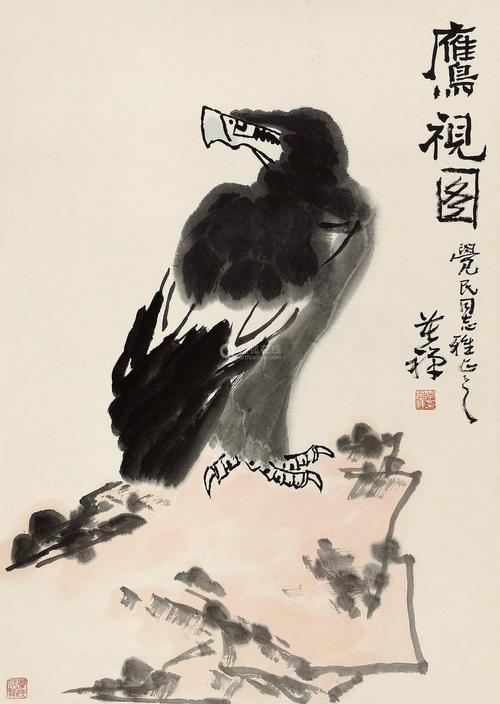 鷹視图
覺民同志雅正之
苦禅